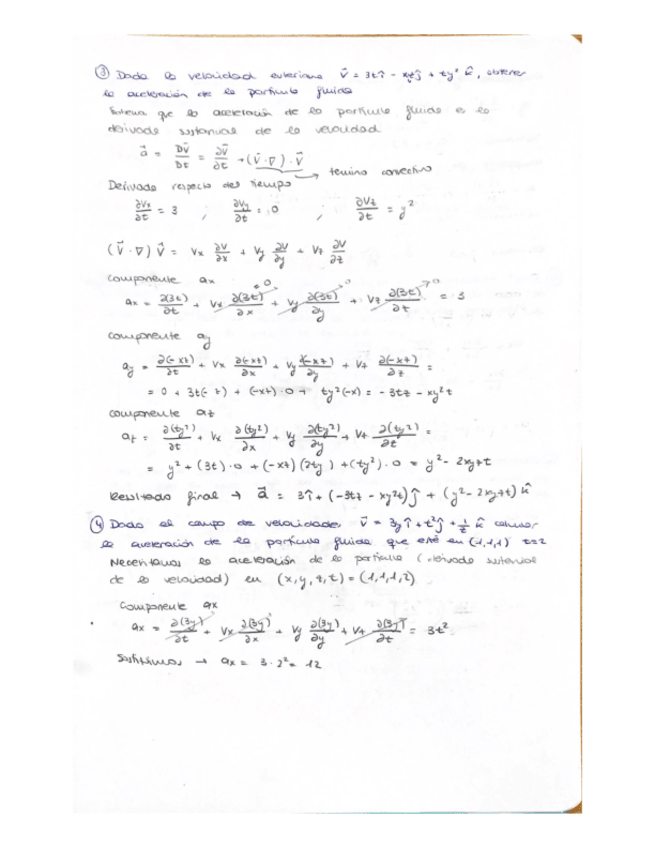 ③ Dada la velocidad euleriana v⃗ = 3t î - xz ĵ + ty² k̂, obtener
la aceleración de la partícula fluida
que la aceleración de la partícula fluida es la
derivada sustancial de la velocidad
a⃗ = Dv⃗/Dt = ∂v⃗/∂t + (v⃗·∇)·v⃗ → termino convectivo
Derivada respecto del tiempo
∂Vx/∂t = 3 ; ∂Vy/∂t = 0 ; ∂Vz/∂t = y²
(v⃗·∇) v⃗ = Vx ∂V/∂x + Vy ∂V/∂y + Vz ∂V/∂z
componente ax
ax = ∂(3t)/∂t + Vx ∂(3t)/∂x →0 + Vy ∂(3t)/∂y →0 + Vz ∂(3t)/∂t →0 = 3
componente ay
ay = ∂(-xz)/∂t + Vx ∂(-xz)/∂x + Vy (-xz)/∂y + Vz ∂(-xz)/∂z =
= 0 + 3t(-z) + (-xz)·0 + ty²(-x) = -3tz - xy²t
componente az
az = ∂(ty²)/∂t + Vx ∂(ty²)/∂x + Vy ∂(ty²)/∂y + Vz ∂(ty²)/∂z =
= y² + (3t)·0 + (-xz)(2ty) + (ty²)·0 = y² - 2xyzt
Resultado final → a⃗ = 3î + (-3tz - xy²t) ĵ + (y² - 2xyzt) k̂
④ Dado el campo de velocidades v⃗ = 3y î + t² ĵ + 1/z k̂ calcular
la aceleración de la partícula fluida que esté en (1,1,1) t=2
Necesitamos la aceleración de la partícula (derivada sustancial
de la velocidad) en (x,y,z,t) = (1,1,1,2)
Componente ax
ax = ∂(3y)/∂t + Vx ∂(3y)/∂x + Vy ∂(3y)/∂y + Vz ∂(3y)/∂t = 3t²
Sustituimos → ax = 3·2² = 12